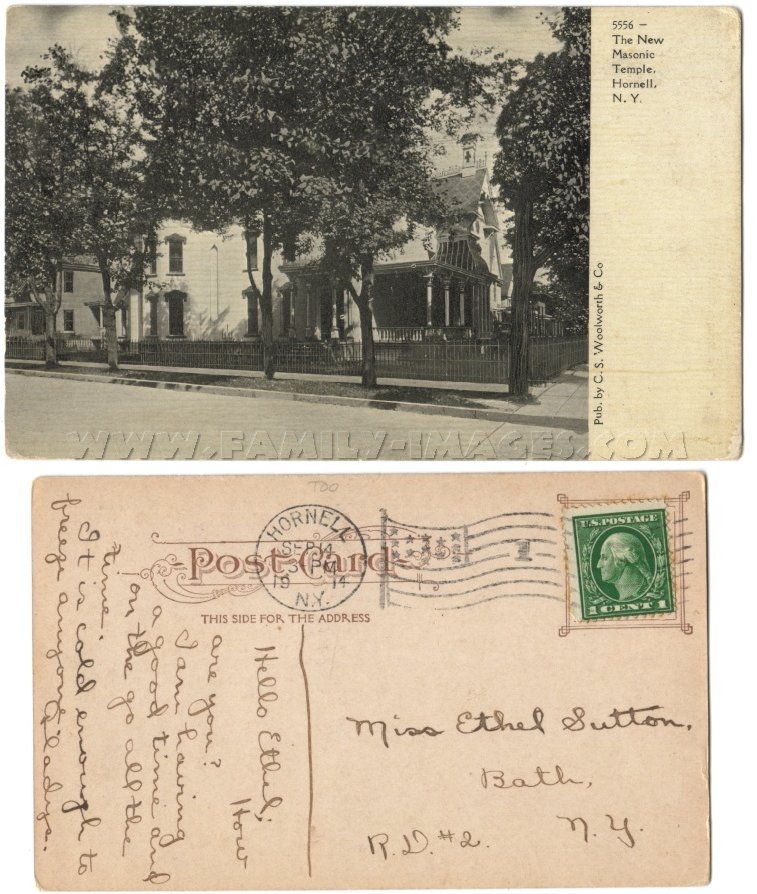 5556 –
The New
Masonic
Temple,
Hornell,
N. Y.
Pub. by C. S. Woolworth & Co
WWW.FAMILY-IMAGES.COM
TDO
Post-Card
THIS SIDE FOR THE ADDRESS
HORNELL
SEP 4
3 PM
19 14
N.Y.
1
U.S. POSTAGE
1 CENT 1
Hello Ethel;
How
are you?
I am having
a good time and
on the go all the
time.
It is cold enough to
freeze anyone.
Gladys.
Miss Ethel Sutton,
Bath,
N.Y.
R.D. #2.